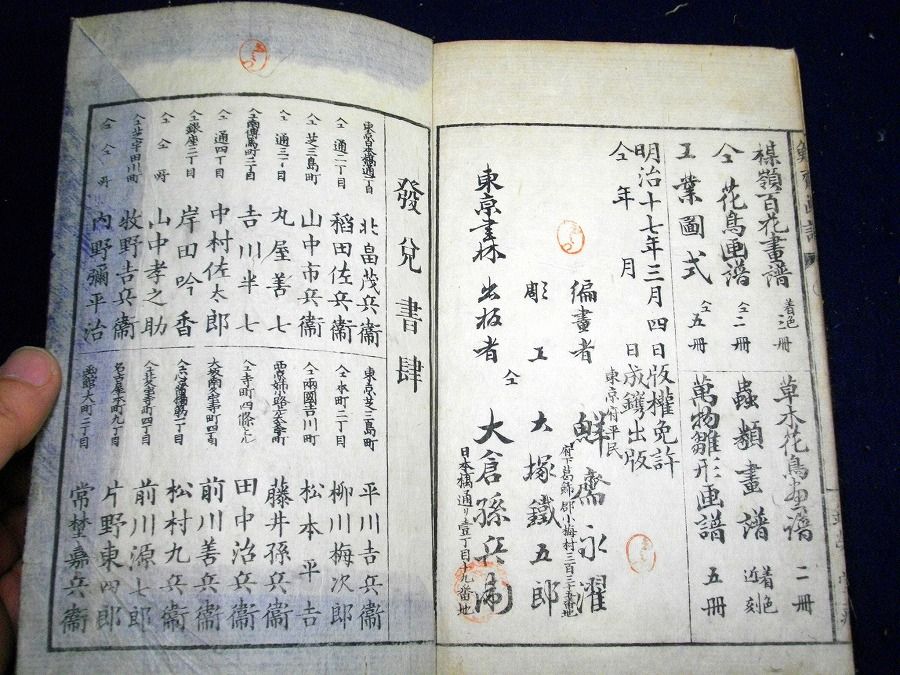 楳嶺百花畫譜 着色 冊
草木花鳥画譜 二冊
仝花鳥画譜 仝二冊
蟲類畫譜 着色 近刻
工業圖式 仝五冊
萬物雛形画譜 五冊
明治十七年三月四日版權免許
仝年 月 日成鐫出版
東京府平民
編畫者 鮮齋永濯
府下葛飾郡小梅村三百三十五番地
彫工 大塚鐵五郎
東京書林出板者 仝 大倉孫兵衛
日本橋通り壹丁目十九番地
發兌書肆
東京日本橋通一丁目 北畠茂兵衞
仝 通二丁目 稻田佐兵衞
仝 芝三島町 山中市兵衞
仝 通三丁目 丸屋善七
仝 南傳馬町二丁目 吉川半七
仝 通四丁目 中村佐太郎
仝 銀座二丁目 岸田吟香
仝 仝所 山中孝之助
仝 芝宇田川町 牧野吉兵衞
仝 仝所 内野彌平治
東京芝三島町 平川吉兵衞
仝 本町二丁目 柳川梅次郎
仝 兩國吉川町 松本平吉
藤井孫兵衞
仝 寺町四條上ル 田中治兵衞
大坂南久宝寺町四丁目 前川善兵衞
松村九兵衞
仝 北久宝寺町四丁目 前川源七郎
名古屋本町九丁目 片野東四郎
函館大町二丁目 常埜嘉兵衞